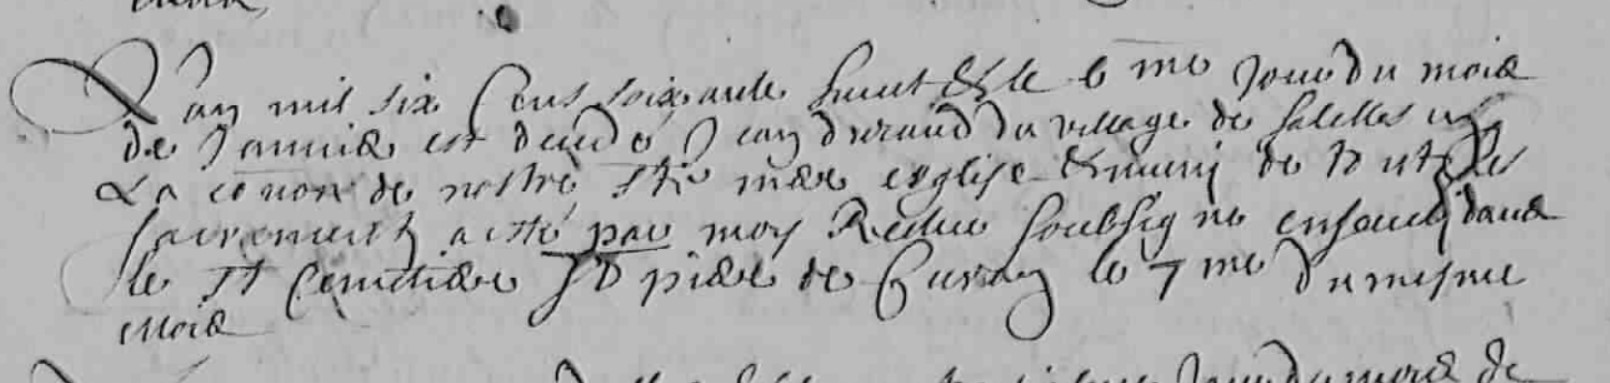 L'an mil six cens soixante huict & le 6 me jour du mois
de Janvier est decedé Jean durand du village de Salelles en
La co[mmun]ion de nostre Ste mere esglise & muny de touts les
sacrements a esté par moy Recteur soubsigne ensevely dans
le St Cemetiere St piere de Cursay le 7 me du mesme
mois